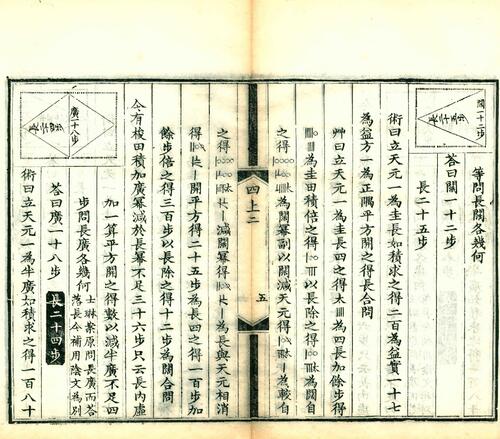 闊一十二步
長二十五步
等問長闊各幾何
答曰闊一十二步
長二十五步
術曰立天元一為圭長如積求之得二百為益實一十七
為益方一為正隅平方開之得長合問
艸曰立天元一為圭長四之得太為四長加餘步得
為圭田積倍之得以長除之得為闊自
之得為闊冪副以闊減天元得為較自
四上二
五
之得減闊冪得為長與天元相消
得開平方得二十五步為長四之得一百步加
餘步倍之得三百步以長除之得十二步為闊合問
今有梭田積加廣冪減於長冪不足三十六步只云長內虛
加一算平方開之得數以減半廣不足四
步問長廣各幾何
士琳案原問長廣而答
落長今補用陰文為別
答曰廣一十八步 長二十四步
術曰立天元一為半廣如積求之得一百八十
廣一十八步